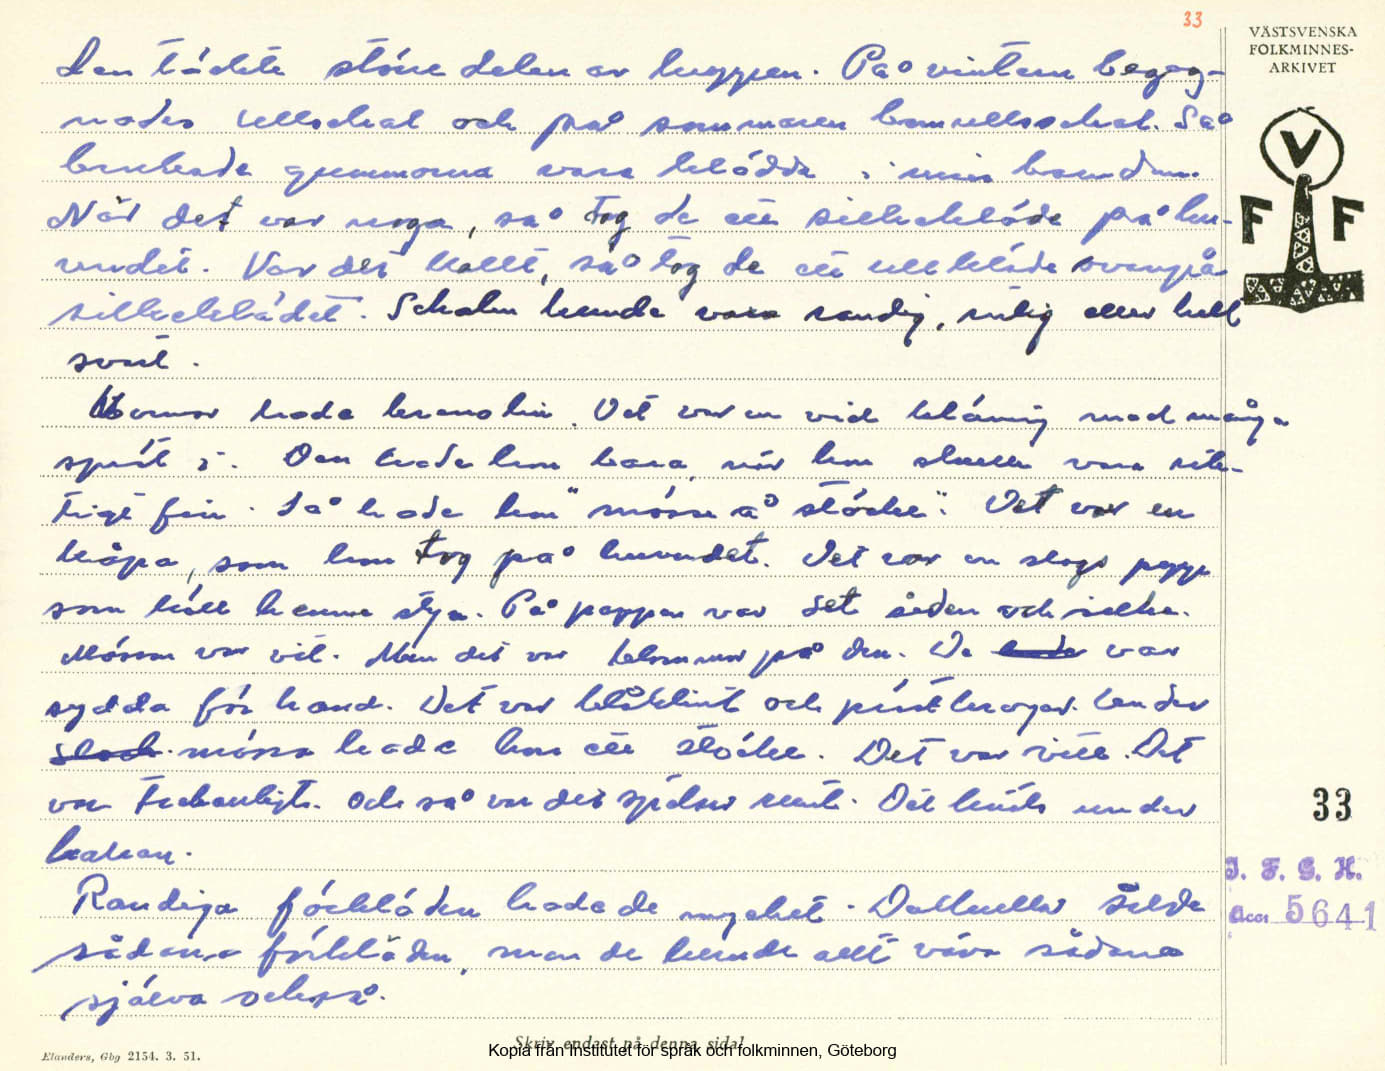 33
VÄSTSVENSKA
FOLKMINNES-
ARKIVET
V
F F
Den täckte större delen av kroppen. På vintern begag-
nades ullschal och på sommaren bomullsschal. Så
brukade gummorna vara klädda i min barndom.
När det var noga, så tog de ett silkekläde på hu-
vudet. Var det kallt, så tog de ett ullkläde ovanpå
silkeklädet. Schalen kunde vara randig, rutig eller helt
svart.
Mormor hade krenolin. Det var en vid klänning med många
spröt i. Den hade hon bara, när hon skulle vara rik-
tigt fin. Så hade hon "mössa å stöcke". Det var en
kåpa, som hon tog på huvudet. Det var en slags papp
som höll henne styv. På pappen var det siden och silke.
Mössan var vit. Men det var blommor på den. De var
sydda för hand. Det var blåklint och prästkragar. Under
mössa hade hon ett stöcke. Det var vitt. Det
var trekantigt. Och så var det spetsar runt. Det knöts under
hakan.
Randiga förkläden hade de mycket. Dalkullor sålde
sådana förkläden, men de kunde allt väva sådana
själva också.
33
I. F. G. H.
Acc. 5641
Elanders, Gbg 2154. 3. 51.
Skriv endast på denna sida!
Kopia från Institutet för språk och folkminnen, Göteborg